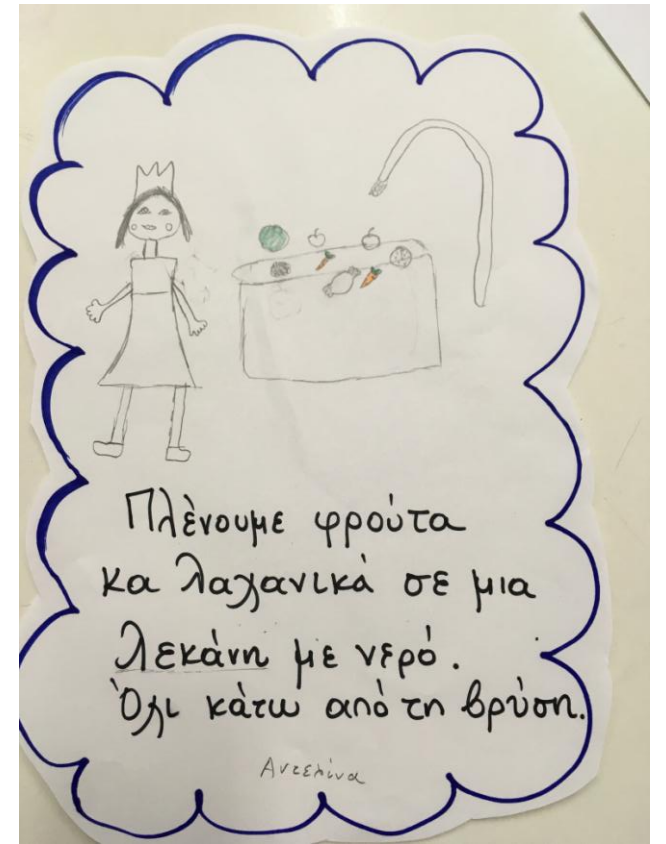 Πλένουμε φρούτα
κα λαχανικά σε μια
λεκάνη με νερό.
Όχι κάτω από τη βρύση.
Αντελίνα